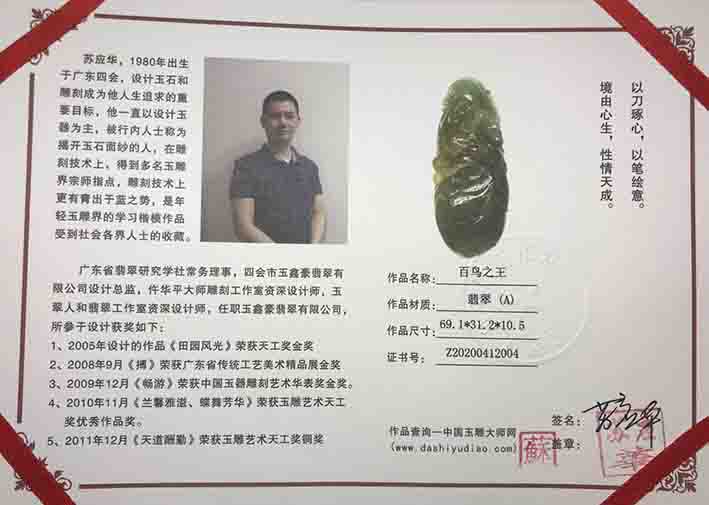 苏应华，1980年出生
于广东四会，设计玉石和
雕刻成为他人生追求的重
要目标，他一直以设计玉
器为主，被行内人士称为
揭开玉石面纱的人，在雕
刻技术上、得到多名玉雕
界宗师指点，雕刻技术上
更有青出于蓝之势，是年
轻玉雕界的学习楷模作品
受到社会各界人士的收藏。
广东省翡翠研究学社常务理事，四会市玉鑫豪翡翠有
限公司设计总监，仵华平大师雕刻工作室资深设计师，玉
翠人和翡翠工作室资深设计师，任职玉鑫豪翡翠有限公司，
所参于设计获奖如下：
1、2005年设计的作品《田园风光》荣获天工奖金奖
2、2008年9月《搏》荣获广东省传统工艺美术精品展金奖
3、2009年12月《畅游》荣获中国玉器雕刻艺术华表奖金奖。
4、2010年11月《兰馨雅道、蝶舞芳华》荣获玉雕艺术天工
奖优秀作品奖。
5、2011年12月《天道酬勤》荣获玉雕艺术天工奖铜奖
以刀琢心，以笔绘意。
境由心生，性情天成。
作品名称：百鸟之王
作品材质：翡翠（A）
作品尺寸：69.1*31.2*10.5
证书号：Z20200412004
作品查询—中国玉雕大师网
(www.dashiyudiao.com)
签名：苏应华
盖章：
蘇